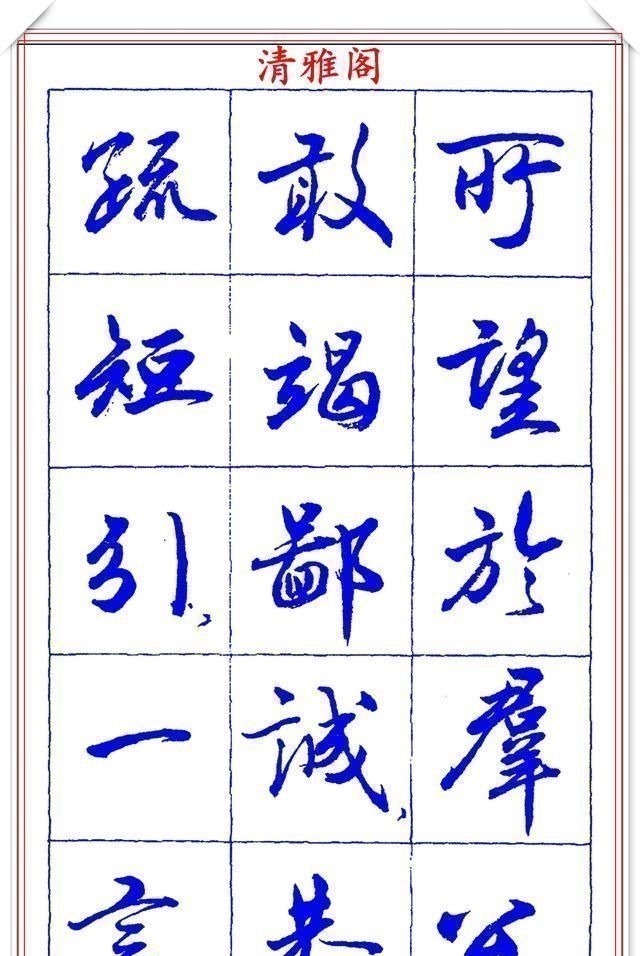 清雅阁
所望於羣公
敢竭鄙誠，恭
疏短引，一言